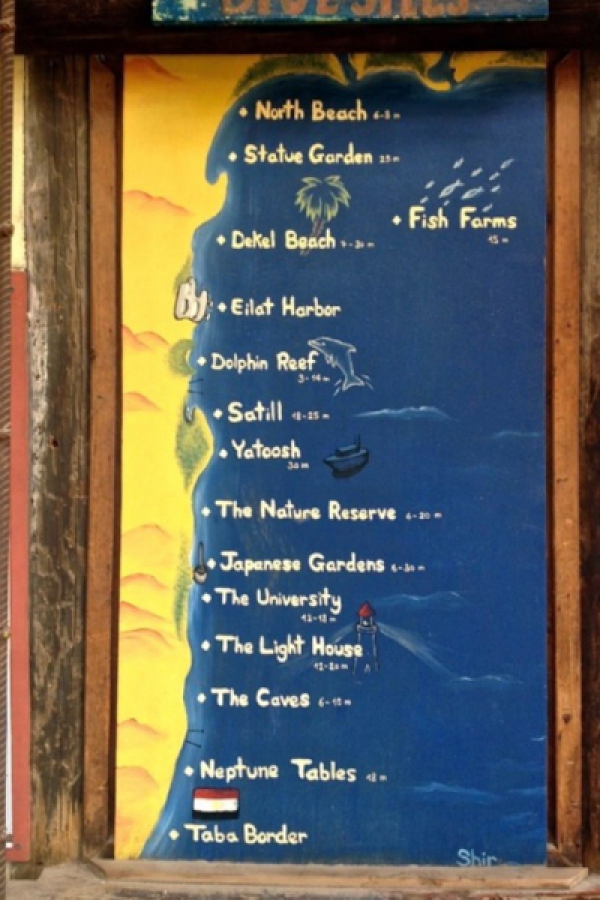 DIVE SITES
North Beach 6-8 m
Statue Garden 25 m
Fish Farms
15 m
Dekel Beach 7-30 m
Eilat Harbor
Dolphin Reef
3-14 m
Satill 18-25 m
Yatoosh
30 m
The Nature Reserve 6-20 m
Japanese Gardens 6-30 m
The University
12-18 m
The Light House
12-20 m
The Caves 6-15 m
Neptune Tables 18 m
Taba Border
Shir